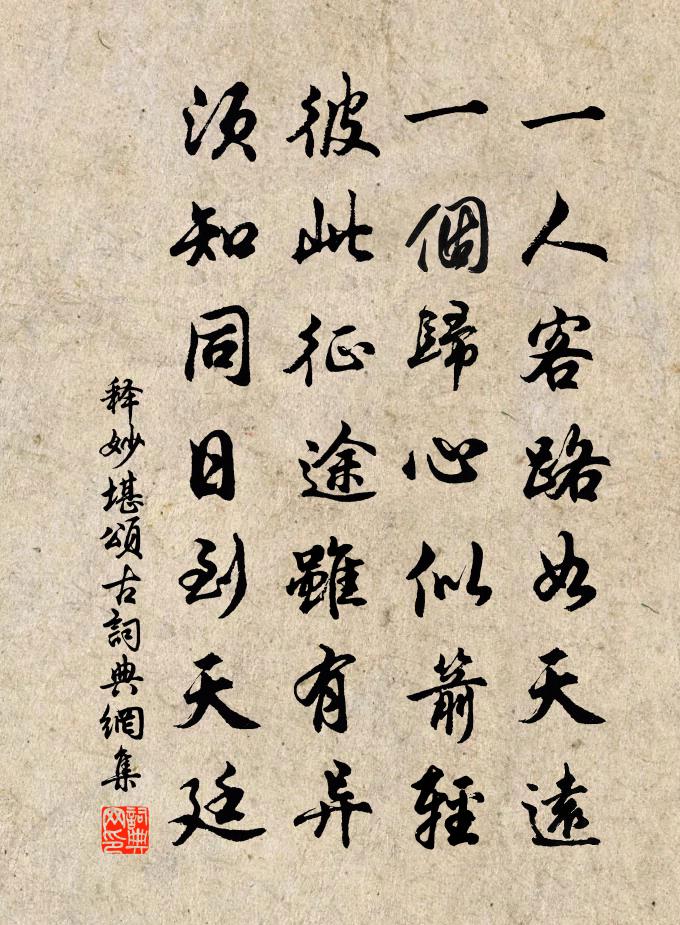 一人客路如天遠
一個歸心似箭輕
彼此征途雖有异
須知同日到天廷
释妙堪頌古詞典網集
詞典網印